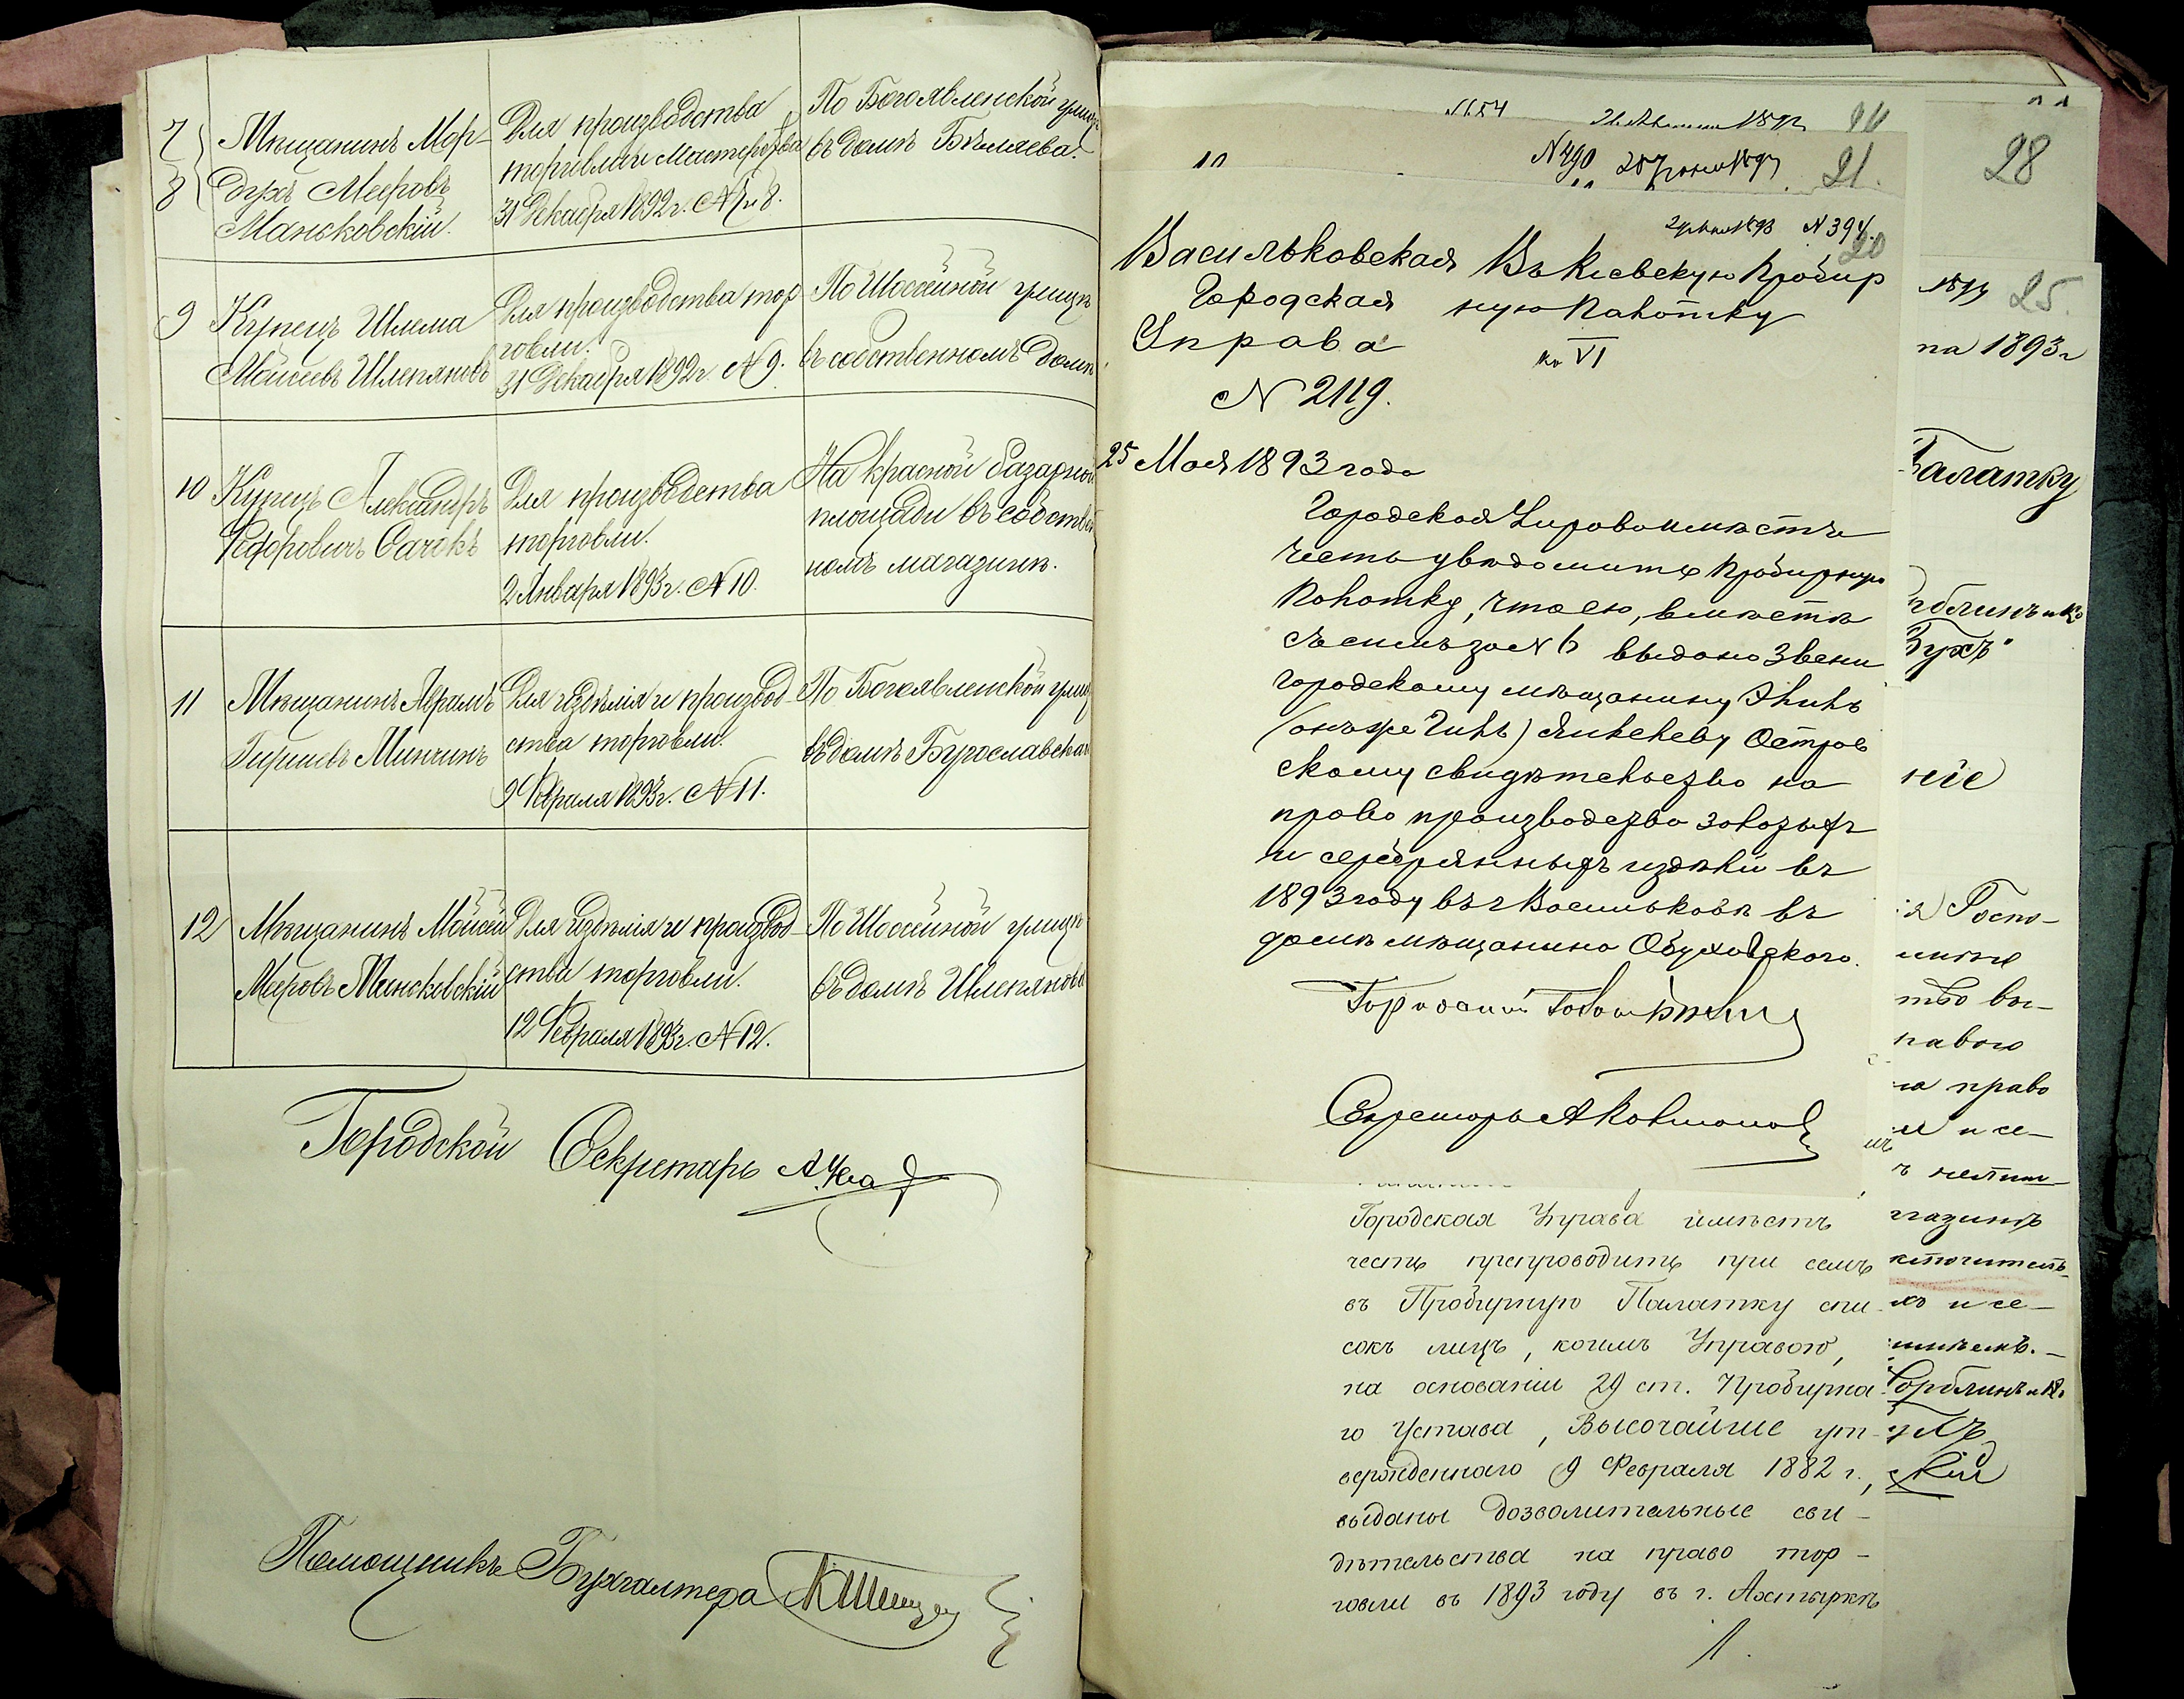 7
8
Мѣщанинъ Мор-
духъ Мееровъ
Маньковскій.
Для производства
торговли и мастерства
31 Декабря 1892 г. № 7 и 8.
По Богоявленской улицѣ
въ домѣ Бѣляева.
9
Купецъ Шлема
Мойсеевъ Шлепяновъ
Для производства тор-
говли.
31 Декабря 1892 г. № 9.
По Шоссейной улицѣ
въ собственномъ домѣ
10
Купецъ Александръ
Федоровичъ Сачокъ
Для производства
торговли.
2 Января 1893 г. № 10.
На красной базарной
площади въ собствен
номъ магазинѣ.
11
Мѣщанинъ Абрамъ
Гиршевъ Минчинъ
Для издѣлія и производ-
ства торговли.
9 Февраля 1893 г. № 11.
По Богоявленской улиц
въ домѣ Бурославска
12
Мѣщанинъ Мойсей
Мееровъ
Для издѣлія и производ-
ства торговли.
12 Февраля 1893 г. № 12.
По Шоссейной улицѣ
въ домѣ Шлепянова
Городской Секретарь
Помощникъ Бухгалтера
№ 490
21.
№ 394.
20
Васильковская
Городская
Управа
№ 2119.
25 Мая 1893 года
Въ Кіевскую Пробир
ную Палатку
VI
Городская Управа имѣетъ
честь увѣдомить Пробирную
Палатку, что ею, вмѣстѣ
съ симъ за № 6 выдано Звени
городскому мѣщанину
(онъ же ) Островскому свидѣтельство на
право производства золотыхъ
и серебрянныхъ издѣлій въ
1893 году въ г. Васильковѣ въ
домѣ мѣщанина Обуховского.
Секретарь
Городская Управа имѣетъ
честь препроводить при семъ
въ Пробирную Палатку спи-
сокъ лицъ, коимъ Управою,
на основаніи 29 ст. Пробирна-
го Устава, Высочайше ут-
вержденнаго 9 Февраля 1882 г.,
выданы дозволительные сви-
дѣтельства на право тор-
говли въ 1893 году въ г. Ахтыркѣ
28
25
на 1893 г
Палатку
ніе
я Госпо-
на право
и се-
газинѣ
хъ и се-
скій